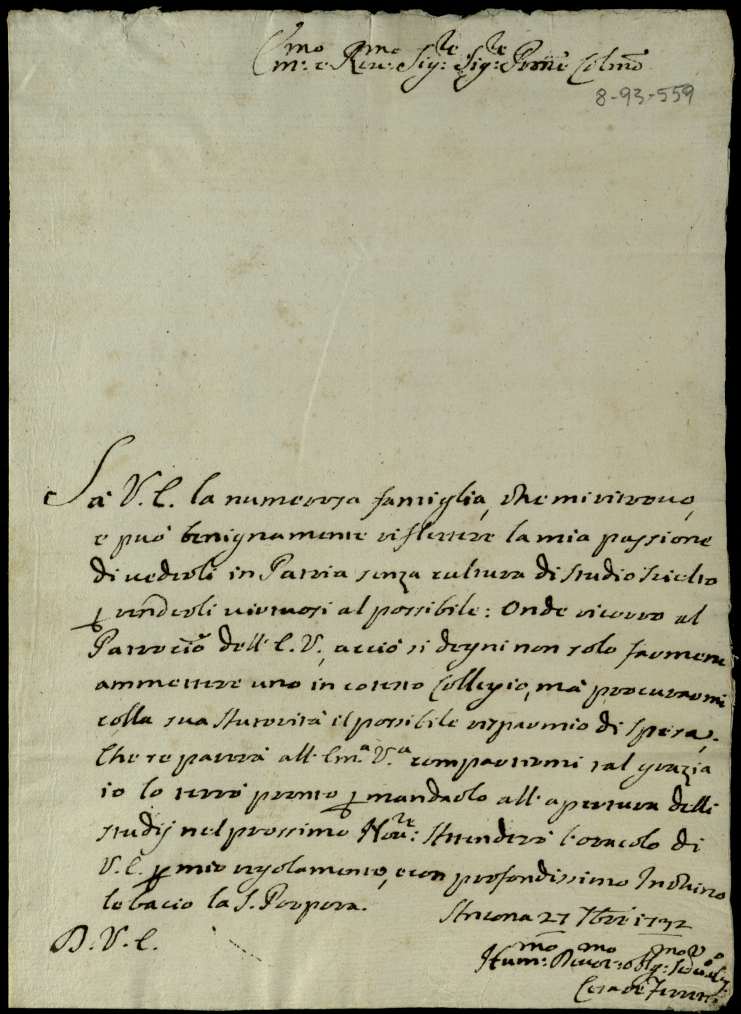 Em:mo e Rev:mo Sig:re Sig:re Prone Colmo
8-93-559
Sà V. E. la numerosa famiglia, che mi ritrovo,
e può benignamente riflettere la mia passione
di vederli in Patria senza cultura di studio scielto
p renderli virtuosi al possibile: Onde ricorro al
Patrocio dell'E. V., acciò si degni non solo farmene
ammettere uno in cotesto Collegio, mà procurarmi
colla sua Autorità il possibile risparmio di spesa.
Che se parerà all'Em:a V:a compartirmi tal grazia
io lo terrò pronto p mandarlo all'apertura delli
studij nel prossimo Nov:re: Attenderò l'oracolo di
V. E. p mio regolamento, e con profondissimo Inchino
le bacio la S. Porpora. Ancona 27 7bre 1732
D. V. E.
Hum:mo Devot:mo Obbg:mo
Cesare